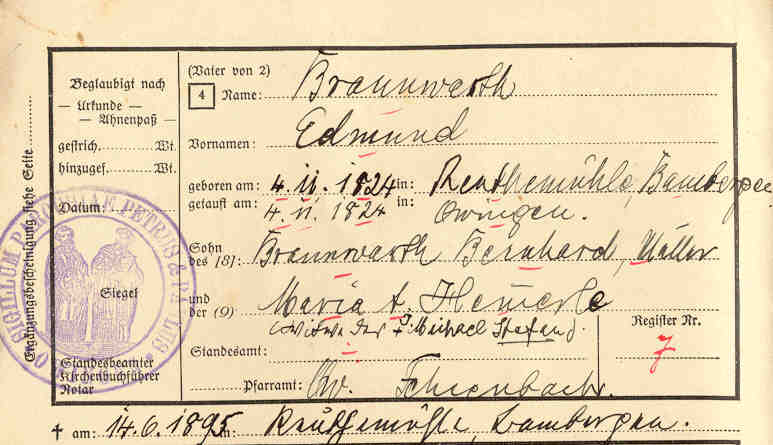 (Vater von 2)
4 Name: Braunwarth
Vornamen: Edmund
geboren am: 4. 11. 1824 in: Reuthemühle, Bambergen
getauft am: 4. 11. 1824 in: Owingen.
Sohn des (8): Braunwarth Bernhard, Müller
und der (9) Maria A.
(Witwe der † Michael Stefan).
Standesamt:
Pfarramt: Ow.
Register Nr.
7
† am: 14.6.1895 Reuthemühle, Bambergen.
Beglaubigt nach
— Urkunde —
— Ahnenpaß —
gestrich. Wt.
hinzugef. Wt.
Datum:
Siegel
Standesbeamter
Kirchenbuchführer
Notar
Ergänzungsbescheinigung siehe Seite
SIGILLUM PETRUS &